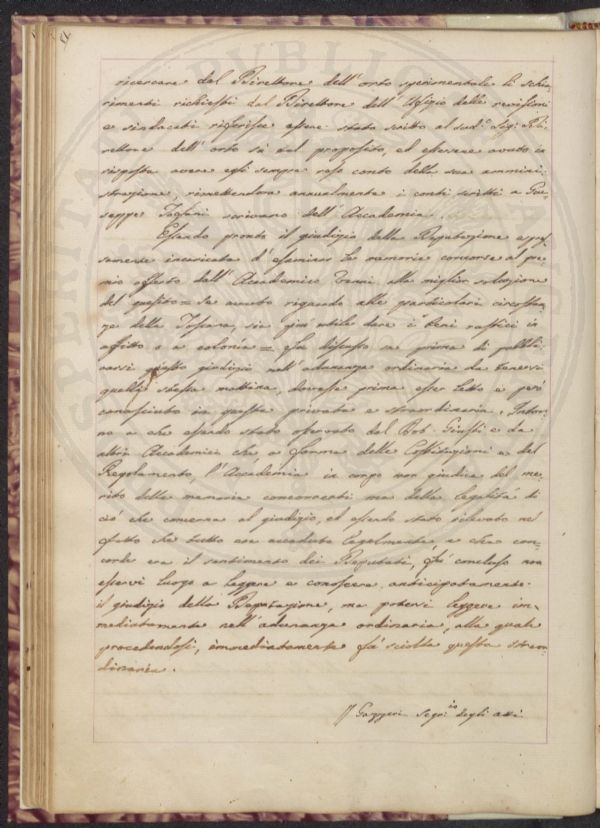 ricercare dal Direttore dell'orto sperimentale li schia-
rimenti richiesti dal Direttore dell'Ufizio delle revisioni
e sindacati riferisce essere stato scritto al sud.° Sig. Di-
rettore dell'orto su tal proposito, ed essersene avuto in
risposta avere egli sempre reso conto della sua ammini-
strazione, rimettendone annualmente i conti scritti a Giu-
seppe Tofani scrivano dell'Accademia.
Essendo pronto il giudizio della Deputazione espres-
samente incaricata d'esaminar le memorie concorse al pre-
mio offerto dall'Accademico alla miglior soluzione
del quesito = Se avuto riguardo alle particolari circostan-
ze della Toscana, sia più utile dare i Beni rustici in
affitto o a colonìa = fu discusso se prima di pubbli-
carsi questo giudizio nell'adunanza ordinaria da tenersi
quella stessa mattina, dovesse prima esser letto e però
conosciuto in questa privata e straordinaria. Intor-
no a che essendo stato osservato dal Dot. Giusti e da
altri Accademici che a forma delle Costituzioni e del
Regolamento, l'Accademia in corpo non giudica del me-
rito delle memorie concorrenti ma della legalità di
ciò che concerne al giudizio, ed essendo stato rilevato
che tutto era accaduto legalmente e che con-
corde era il sentimento dei Deputati, fù concluso non
esservi luogo a leggere e conoscere anticipatamente
il giudizio della Deputazione, ma potersi leggere im-
mediatamente nell'adunanza ordinaria, alla quale
procedendosi, immediatamente fù sciolta questa straor-
dinaria.
Gazzeri Segr.io degli atti